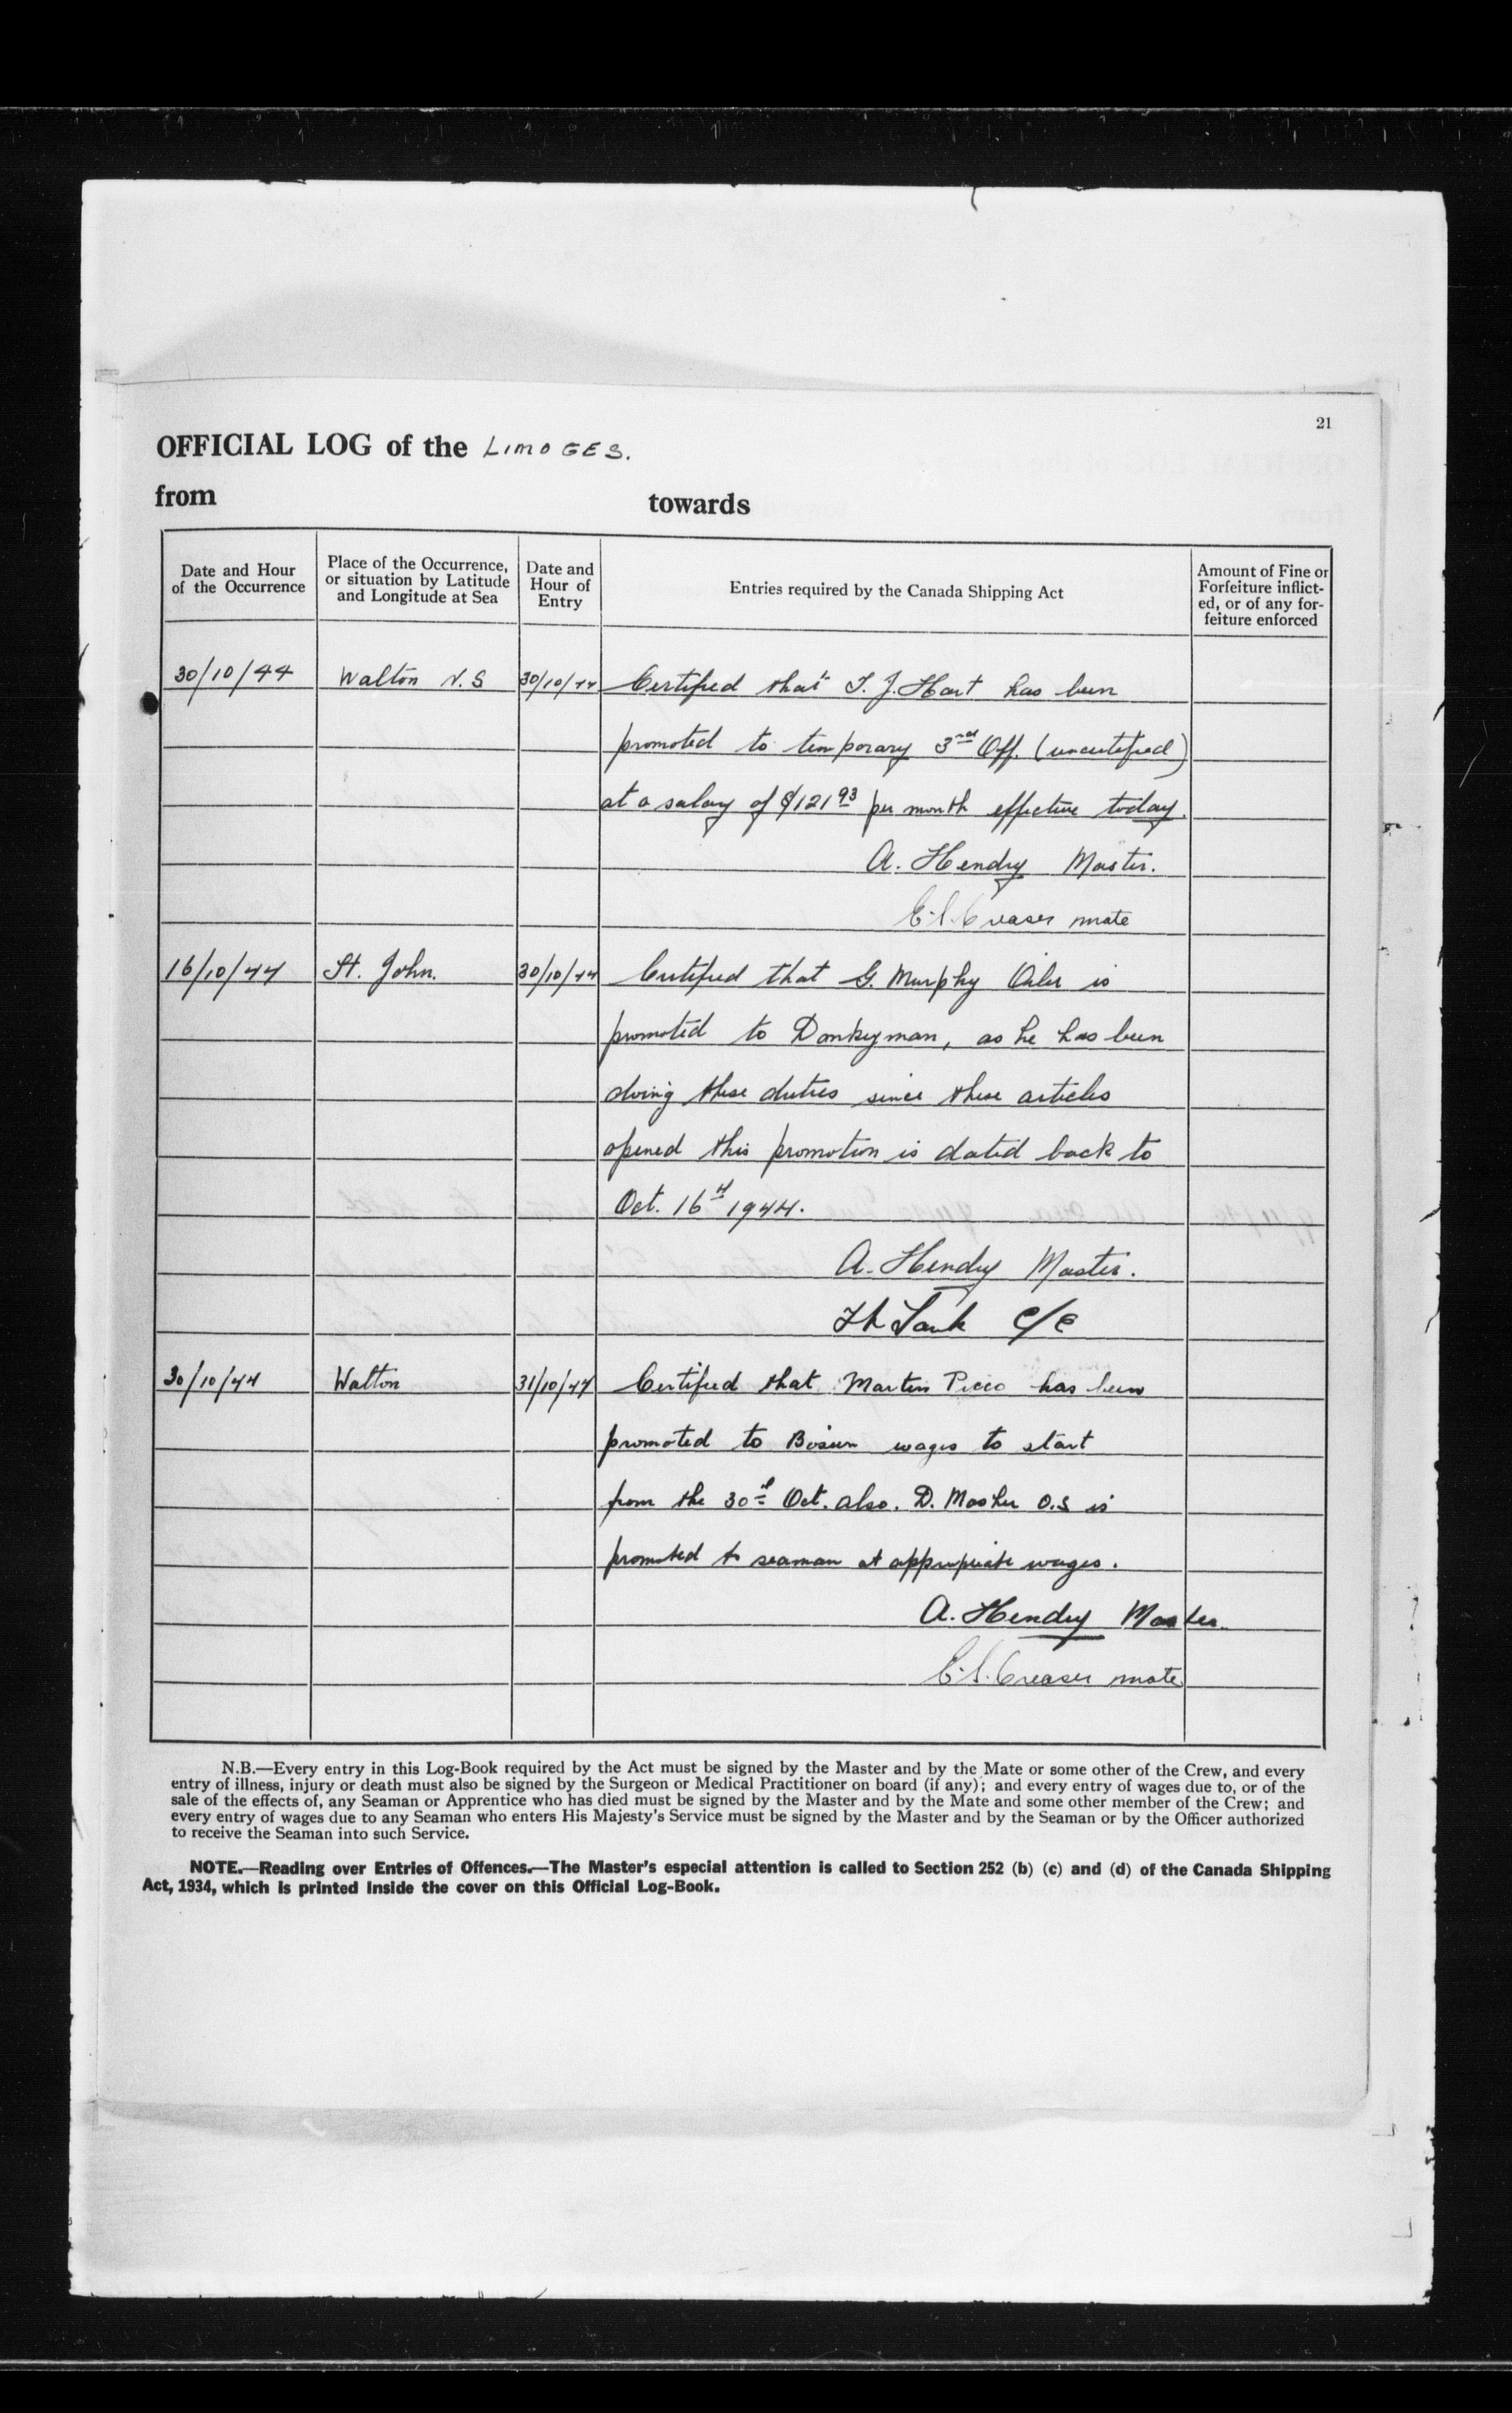 21
OFFICIAL LOG of the LIMOGES.
from towards
Date and Hour of the Occurrence
Place of the Occurrence, or situation by Latitude and Longitude at Sea
Date and Hour of Entry
Entries required by the Canada Shipping Act
Amount of Fine or Forfeiture inflict-ed, or of any for-feiture enforced
30/10/44 Walton N.S 30/10/44 Certified that T. J. Hart has been
promoted to temporary 3rd Off. (uncertified)
at a salary of $121 93 per month effective today.
A. Hendry Master.
E.S. Creaser mate
16/10/44 St. John. 30/10/44 Certified that G. Murphy Oiler is
promoted to Donkeyman, as he has been
doing these duties since these articles
opened this promotion is dated back to
Oct. 16th 1944.
A. Hendry Master.
C/E
30/10/44 Walton 31/10/44 Certified that Martin Picco has been
promoted to Bosun wages to start
from the 30th Oct. also. D. Mosher O.S is
promoted to seaman at appropriate wages.
A. Hendry Master.
E.S. Creaser mate
N.B.—Every entry in this Log-Book required by the Act must be signed by the Master and by the Mate or some other of the Crew, and every
entry of illness, injury or death must also be signed by the Surgeon or Medical Practitioner on board (if any); and every entry of wages due to, or of the
sale of the effects of, any Seaman or Apprentice who has died must be signed by the Master and by the Mate and some other member of the Crew; and
every entry of wages due to any Seaman who enters His Majesty's Service must be signed by the Master and by the Seaman or by the Officer authorized
to receive the Seaman into such Service.
NOTE.—Reading over Entries of Offences.—The Master's especial attention is called to Section 252 (b) (c) and (d) of the Canada Shipping
Act, 1934, which is printed inside the cover on this Official Log-Book.